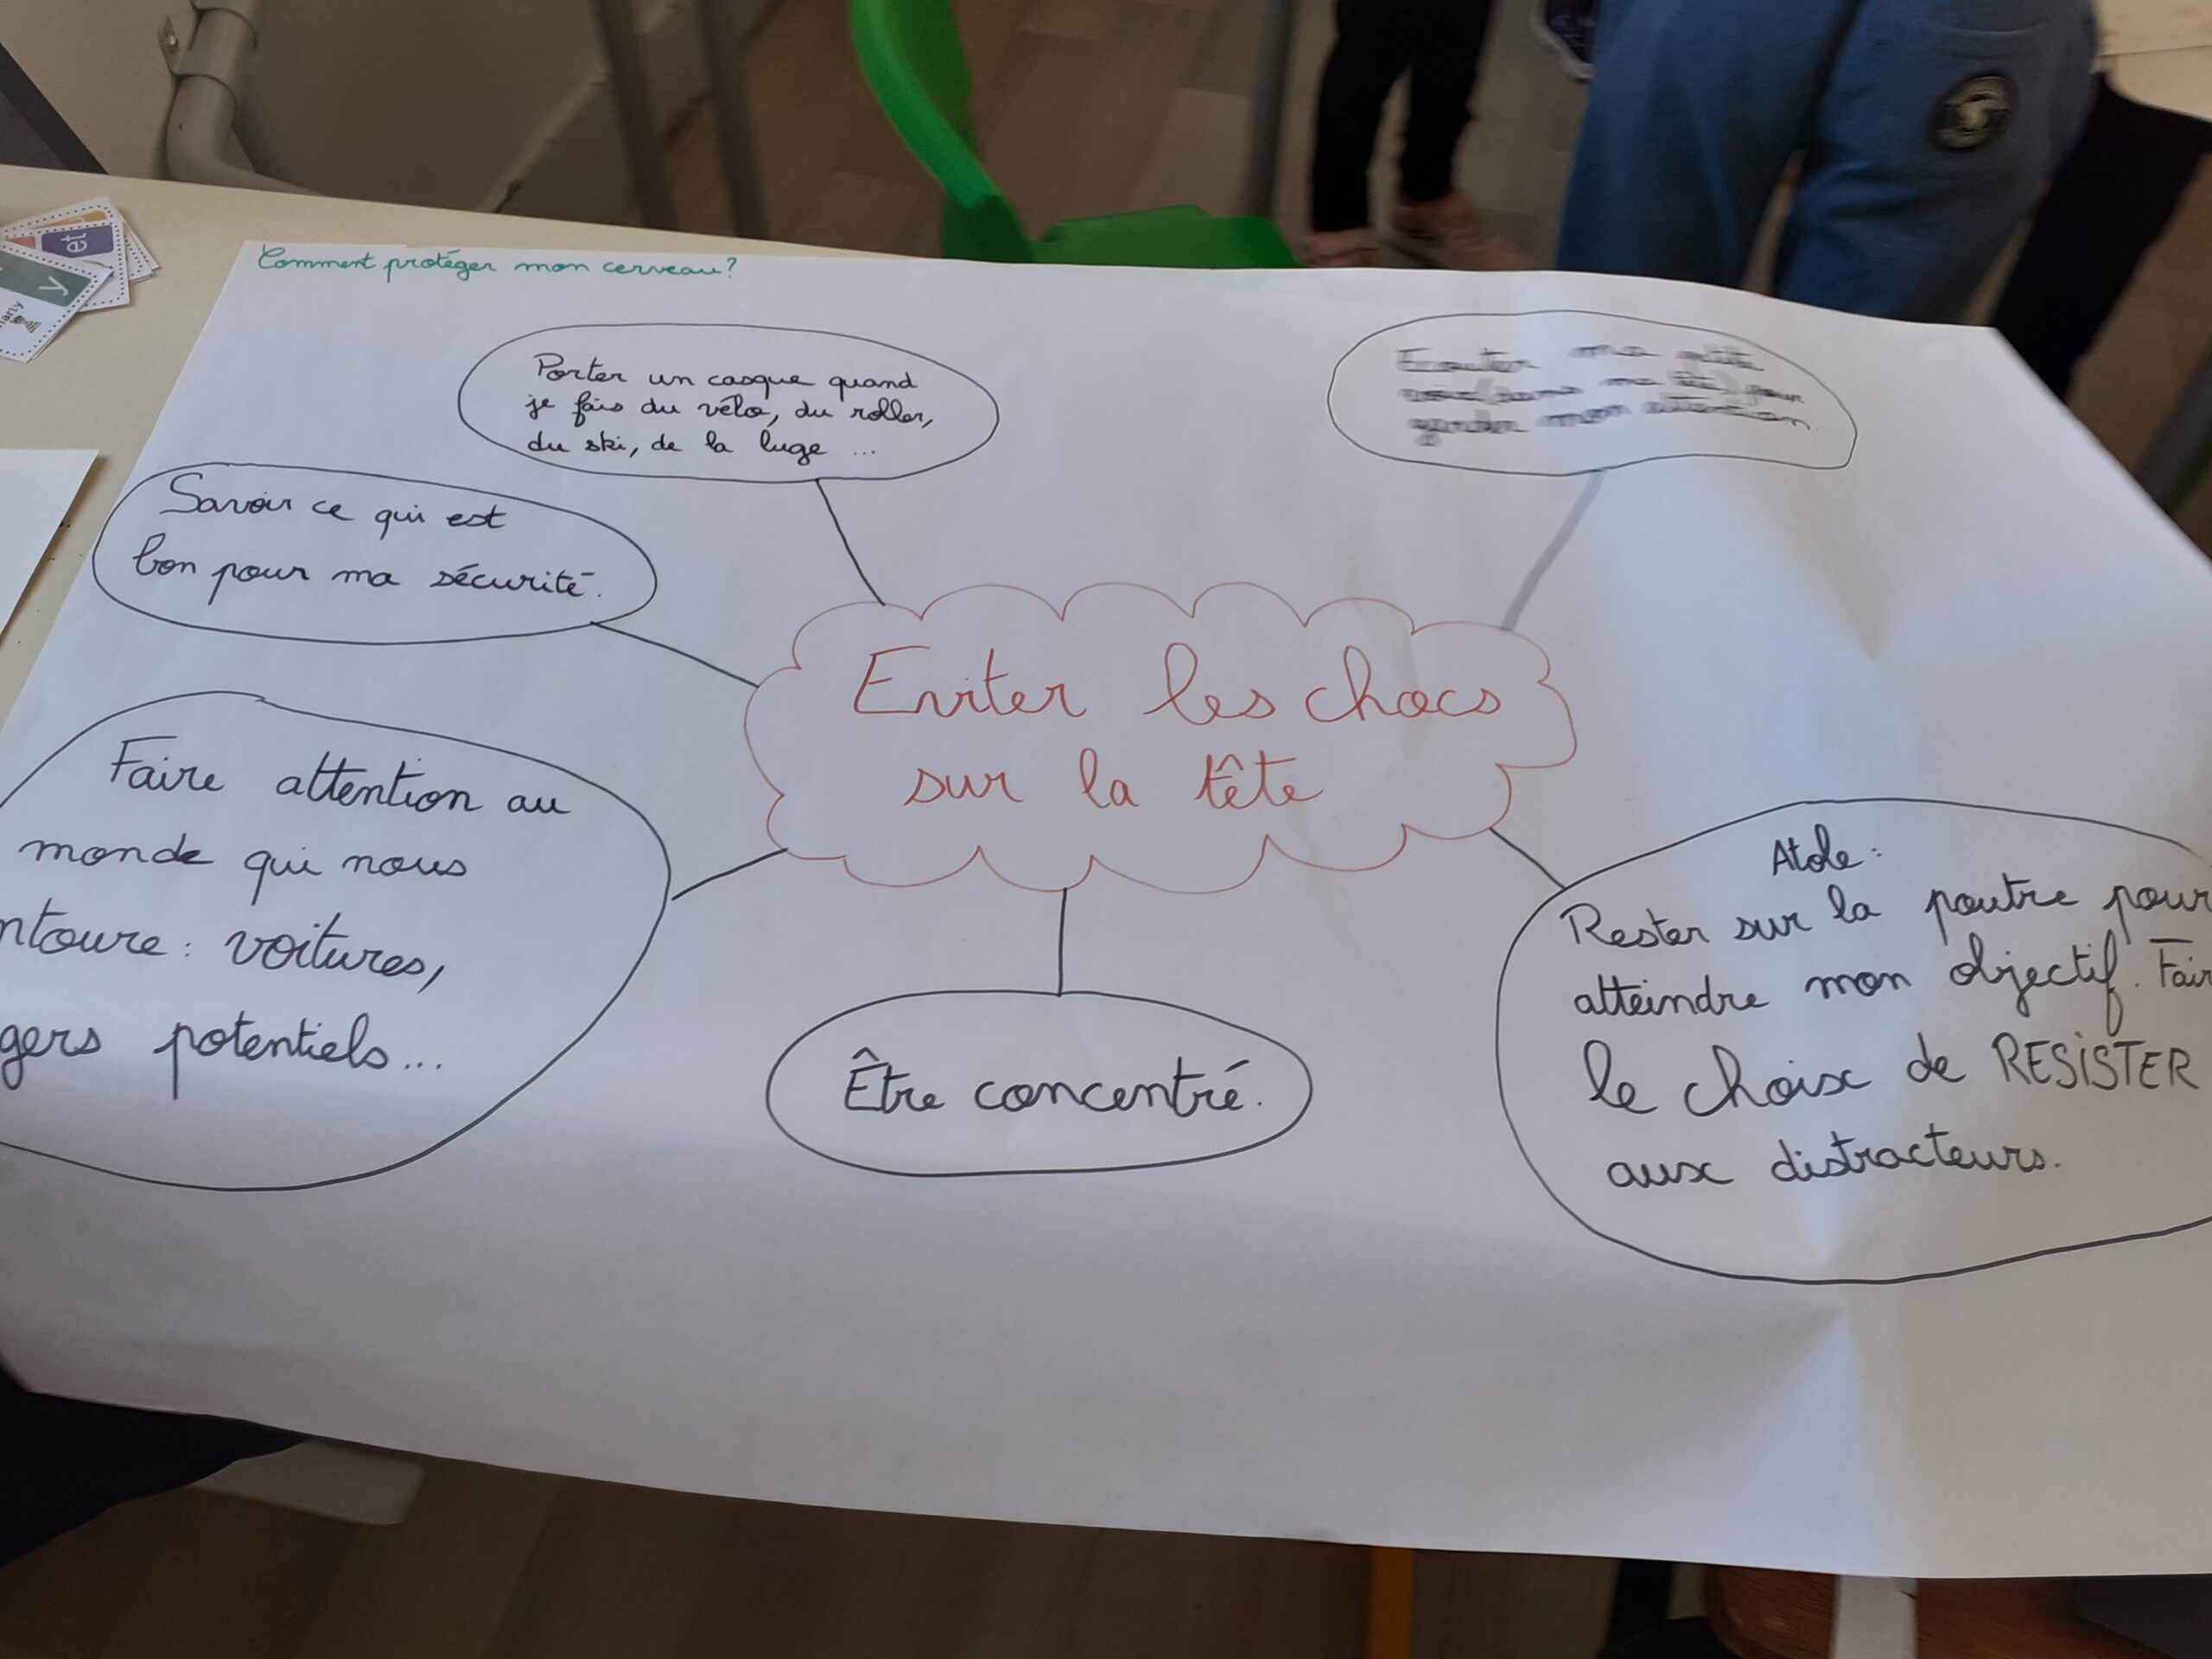 Comment protéger mon cerveau?
Porter un casque quand
je fais du vélo, du roller,
du ski, de la luge ...
Ecouter ma petite
voix (dans ma tête) pour
garder mon attention.
Savoir ce qui est
bon pour ma sécurité.
Eviter les chocs
sur la tête
Faire attention au
monde qui nous
ntoure: voitures,
gers potentiels...
Être concentré.
Atole:
Rester sur la poutre pour
atteindre mon objectif. Fair
le choix de RESISTER
aux distracteurs.
et
y